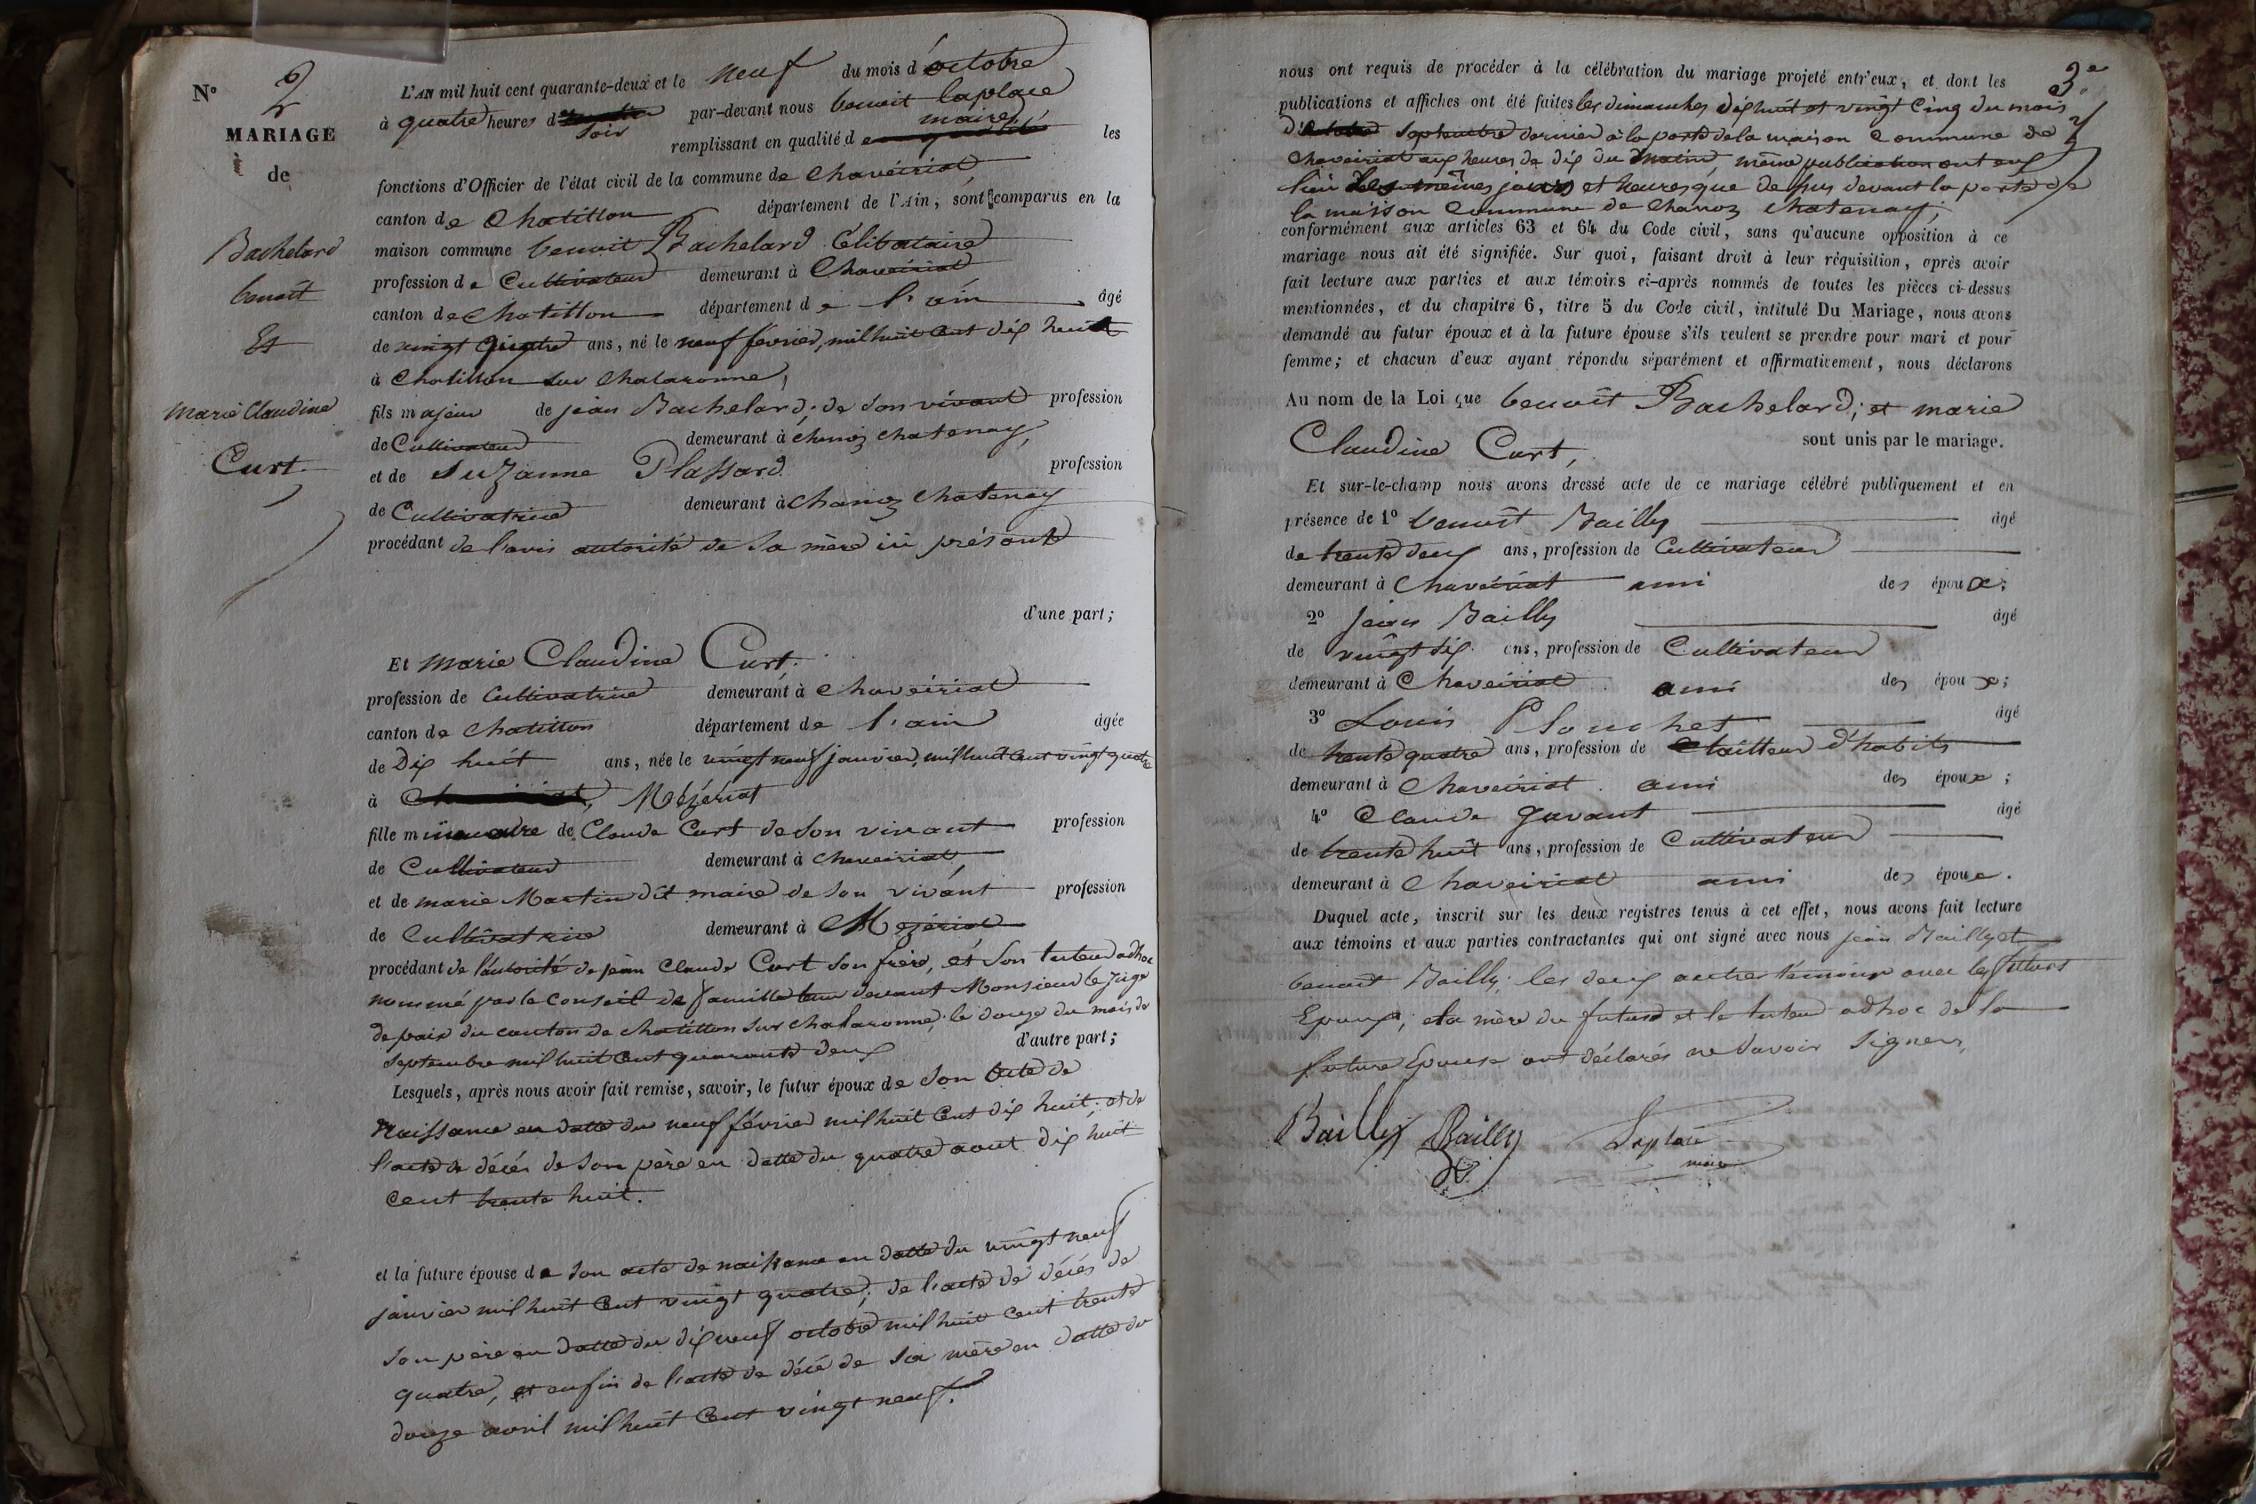 N° 2
MARIAGE
de
Bachelard
benoît
Et
Marie Claudine
Curt.
L'AN mil huit cent quarante-deux et le neuf du mois d'octobre
à quatre heures du soir par-devant nous benoit laplace
maire
remplissant en qualité de les
fonctions d'Officier de l'état civil de la commune de Chaveiriat,
canton de Chatillon département de l'Ain, sont comparus en la
maison commune benoit Bachelard Célibataire
profession de Cultivateur demeurant à Chaveiriat
canton de Chatillon département de l'ain âgé
de vingt quatre ans, né le neuf février, mil huit cent dix huit
à Chatillon sur Chalaronne,
fils majeur de jean Bachelard, de son vivant profession
de Cultivateur demeurant à chanoz chatenay,
et de Suzanne Plassard profession
de Cultivatrice demeurant à Chanoz Chatenay
procédant de l'avis autorité de sa mère ici présente
d'une part;
Et Marie Claudine Curt.
profession de Cultivatrice demeurant à Chaveiriat
canton de Chatillon département de l'ain âgée
de Dix huit ans, née le vingt neuf janvier, mil huit cent vingt quatre
à Mézériat
fille mineure de Claude Curt de son vivant profession
de Cultivateur demeurant à Chaveiriat,
et de marie Martin dit maire de son vivant profession
de Cultivatrice demeurant à Mezériat
procédant de l'autorité de jean Claude Curt son frère, et son tuteur adhoc
nommé par le conseil de famille tenu devant Monsieur le juge
de paix du canton de chatillon sur chalaronne, le douze du mois de
septembre mil huit cent quarante deux d'autre part;
Lesquels, après nous avoir fait remise, savoir, le futur époux de son acte de
Naissance en datte du neuf février mil huit cent dix huit, et de
l'acte de décés de son père en datte du quatre aout dix huit
cent trente huit.
et la future épouse de son acte de naissance en datte du vingt neuf
janvier mil huit cent vingt quatre, de l'acte de décés de
son père en datte du dix neuf octobre mil huit cent trente
quatre, et enfin de l'acte de décé de sa mère en datte du
douze avril mil huit cent vingt neuf.
3e
nous ont requis de procéder à la célébration du mariage projeté entr'eux, et dont les
publications et affiches ont été faites les dimanches dix huit et vingt cinq du mois
de septembre dernier à la porte de la maison Commune de
Chaveiriat aux heures de dix du matin même publication ont eus
lieu les mêmes jours et heures que de sus devant la porte de
la maison Commune de Chanoz chatenay;
conformément aux articles 63 et 64 du Code civil, sans qu'aucune opposition à ce
mariage nous ait été signifiée. Sur quoi, faisant droit à leur réquisition, après avoir
fait lecture aux parties et aux témoins ci-après nommés de toutes les pièces ci-dessus
mentionnées, et du chapitre 6, titre 5 du Code civil, intitulé Du Mariage, nous avons
demandé au futur époux et à la future épouse s'ils veulent se prendre pour mari et pour
femme; et chacun d'eux ayant répondu séparément et affirmativement, nous déclarons
Au nom de la Loi que benoît Bachelard; et marie
Claudine Curt, sont unis par le mariage.
Et sur-le-champ nous avons dressé acte de ce mariage célébré publiquement et en
présence de 1° benoît Bailly âgé
de trente deux ans, profession de Cultivateur
demeurant à Chaveiriat ami des époux;
2° jean Bailly âgé
de vingt six ans, profession de Cultivateur
demeurant à Chaveiriat ami des époux;
3° Louis Plouchet âgé
de trente quatre ans, profession de tailleur d'habits
demeurant à Chaveiriat ami des époux;
4° Claude gavant âgé
de trente huit ans, profession de Cultivateur
demeurant à Chaveiriat ami des époux.
Duquel acte, inscrit sur les deux registres tenus à cet effet, nous avons fait lecture
aux témoins et aux parties contractantes qui ont signé avec nous jean Bailly et
benoît Bailly, les deux autres témoins avec les futurs
Epoux, et la mère du futur et le tuteur adhoc de la
future Epouse ont déclarés ne savoir signer,
Bailly Bailly Laplace
maire